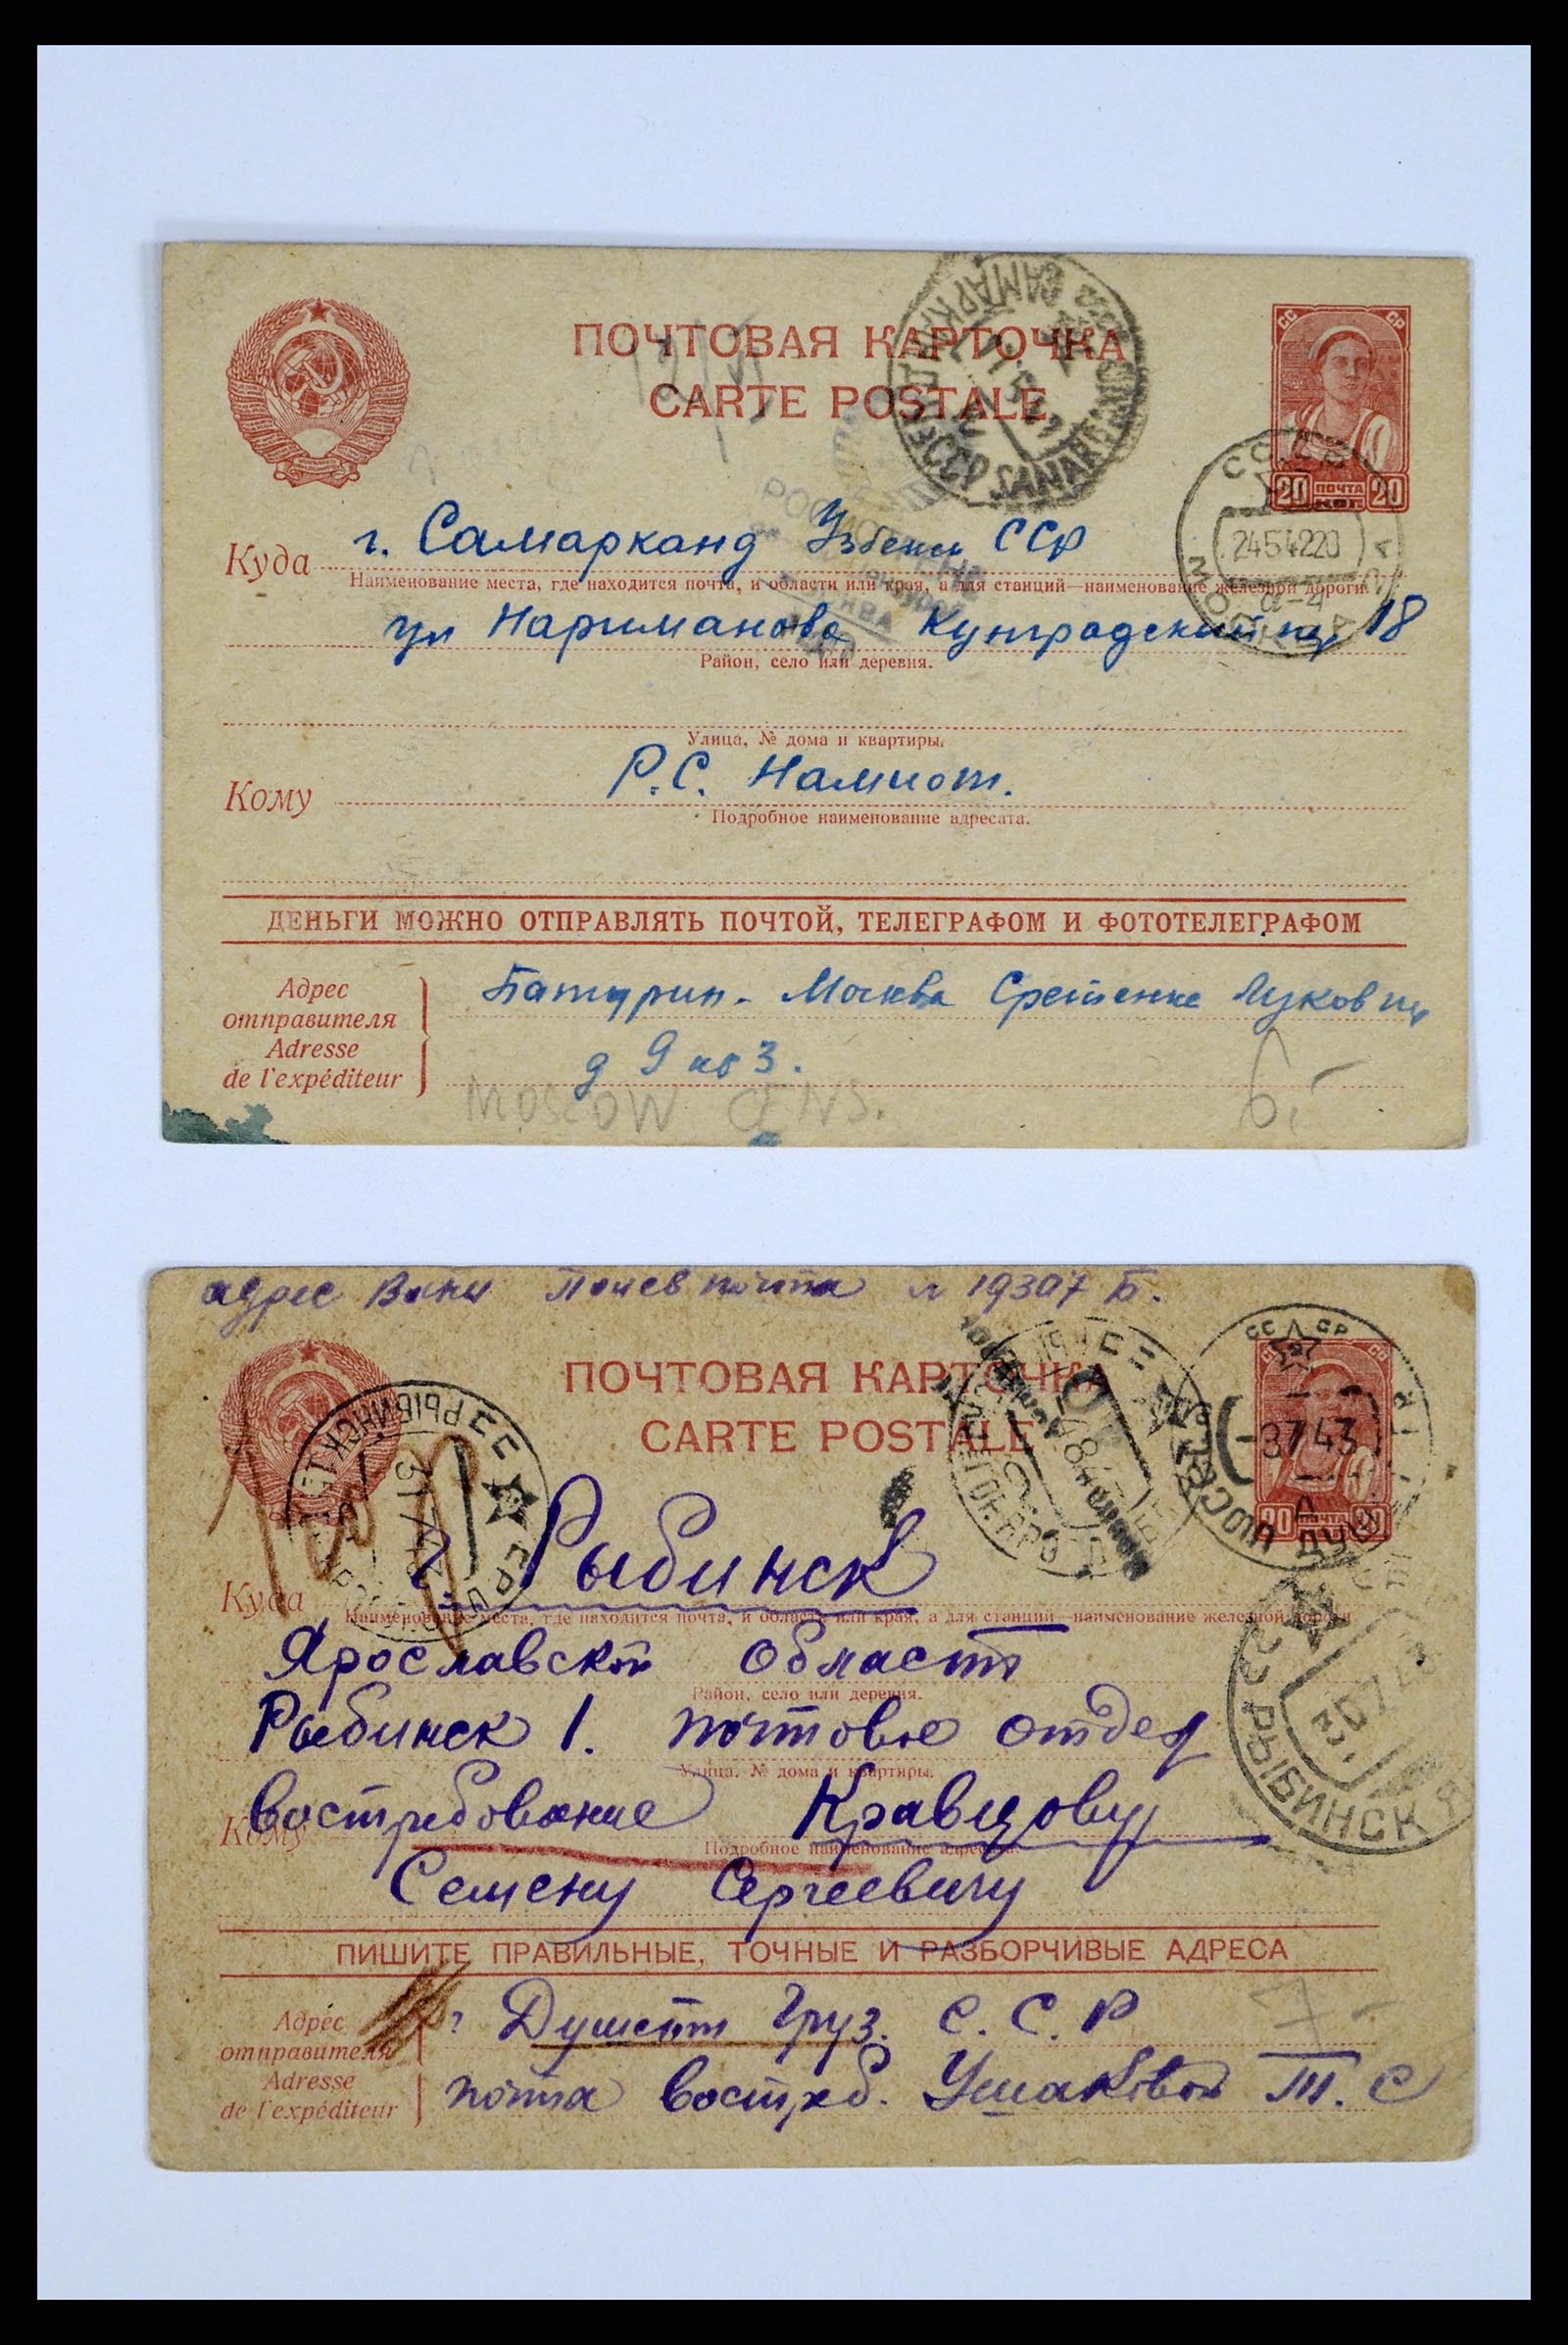 ПОЧТОВАЯ КАРТОЧКА
CARTE POSTALE
СС СР
20 ПОЧТА 20
КОП
2454220
МОСКВА
Куда г. Самарканд Узбекск ССР
Наименование места, где находится почта, и области или края, а для станций—наименование железной дороги.
ул Нариманова Кунградский пр. 18
Район, село или деревня.
Улица, № дома и квартиры.
Кому Р.С. Намиот.
Подробное наименование адресата.
ДЕНЬГИ МОЖНО ОТПРАВЛЯТЬ ПОЧТОЙ, ТЕЛЕГРАФОМ И ФОТОТЕЛЕГРАФОМ
Адрес
отправителя
Adresse
de l'expéditeur
Батурин - Москва Сретенка Луков пер
д 9 кв 3.
MOSCOW CENS.
6,-
адрес Вани Полев почта № 19307 Б.
ПОЧТОВАЯ КАРТОЧКА
CARTE POSTALE
СС СР
-3743
20 ПОЧТА 20
Куда г. Рыбинск
Наименование места, где находится почта, и области или края, а для станций—наименование железной дороги.
Ярославской области
Район, село или деревня.
Рыбинск 1. почтовое отдел
Улица, № дома и квартиры.
Кому востребование Кравцову
Подробное наименование адресата.
Семену Сергеевичу
РЫБИНСК
30743
ПИШИТЕ ПРАВИЛЬНЫЕ, ТОЧНЫЕ И РАЗБОРЧИВЫЕ АДРЕСА
Адрес
отправителя
Adresse
de l'expéditeur
г Душети Груз. С. С. Р
почта востреб. Ушаковой Т. С
7-